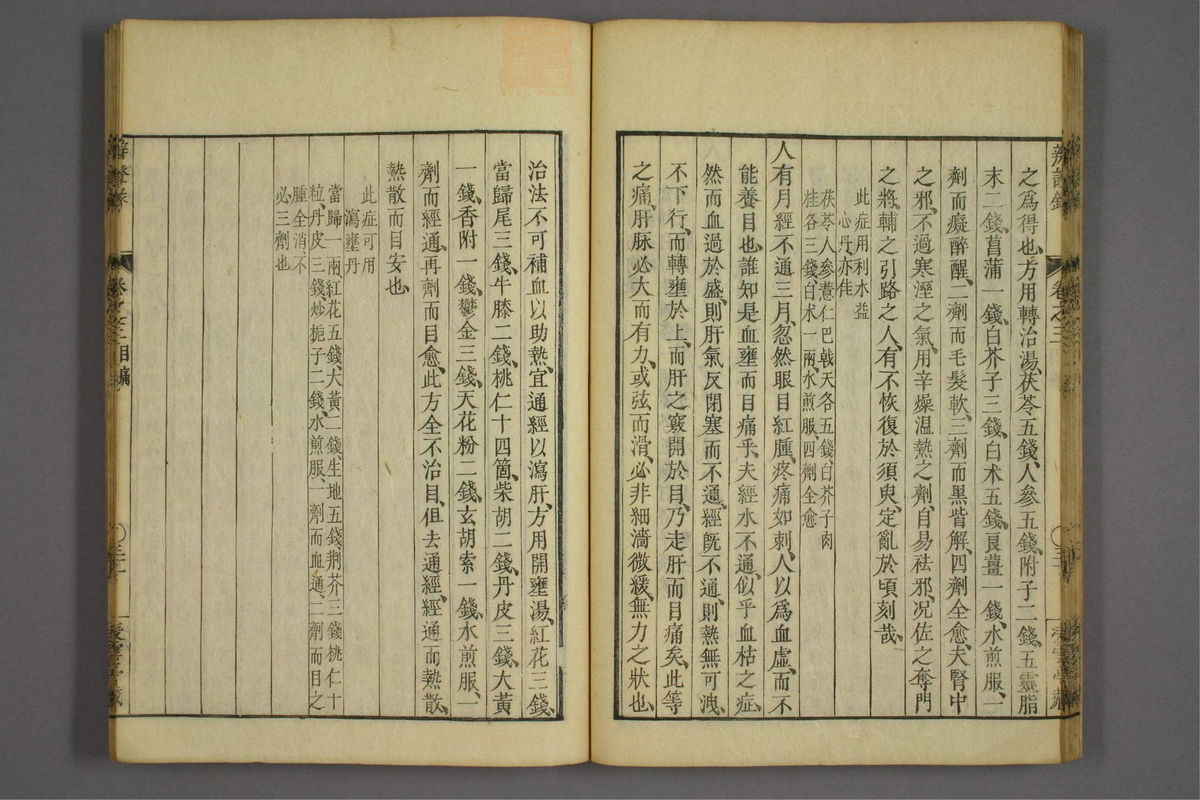 辨證錄
卷之三
之爲得也、方用轉治湯、茯苓五錢、人參五錢、附子二錢、五靈脂
末二錢、菖蒲一錢、白芥子三錢、白术五錢、良薑一錢、水煎服、一
劑而癡醉醒、二劑而毛髮軟、三劑而黑眥解、四劑全愈、夫腎中
之邪、不過寒溼之氣、用辛燥温熱之劑、自易祛邪、况佐之奪門
之將、輔之引路之人、有不恢復於須臾、定亂於頃刻哉、
此症用利水益
心丹、亦佳
茯苓人參薏仁巴戟天各五錢、白芥子肉
桂各三錢、白术一兩、水煎服、四劑全愈
人有月經不通三月、忽然眼目紅腫、疼痛如刺、人以爲血虛、而不
能養目也、誰知是血壅而目痛乎、夫經水不通、似乎血枯之症、
然而血過於盛、則肝氣反閉塞而不通、經既不通、則熱無可洩、
不下行、而轉壅於上、而肝之竅開於目、乃走肝而目痛矣、此等
之痛、肝脉必大而有力、或弦而滑、必非細濇微緩、無力之狀也、
治法不可補血以助熱、宜通經以瀉肝、方用開壅湯、紅花三錢、
當歸尾三錢、牛膝二錢、桃仁十四箇、柴胡二錢、丹皮三錢、大黄
一錢、香附一錢、鬱金三錢、天花粉二錢、玄胡索一錢、水煎服、一
劑而經通、再劑而目愈、此方全不治目、但去通經、經通而熱散、
熱散而目安也、
此症可用
瀉壅丹
當歸一兩、紅花五錢、大黄二錢、生地五錢、荆芥三錢、桃仁十
粒、丹皮三錢、炒梔子二錢、水煎服、一劑而血通、二劑而目之
腫全消、不
必三劑也